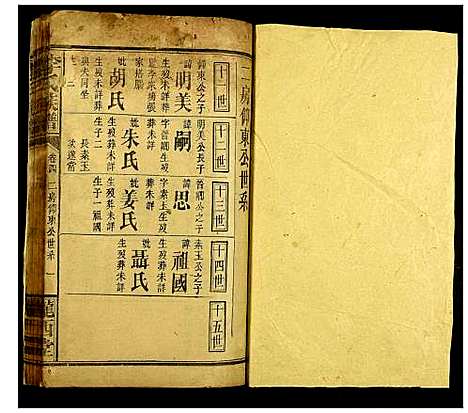 二房仰東公世系
十一世
十二世
十三世
十四世
十五世
仰東公之子
諱明美
生歿未詳葬
妣胡氏
生歿未詳葬
與夫同坐
明美公長子
諱嗣
字晋
生歿葬未詳
妣朱氏
生歿葬未詳
生子二
長素玉
諱思
字素玉生歿
葬未詳
妣姜氏
生歿葬未詳
生子一祖國
素玉公之子
諱祖國
生歿葬未詳
妣聶氏
生歿葬未詳
李氏族譜
卷四
二房仰東公世系
一
隴西堂